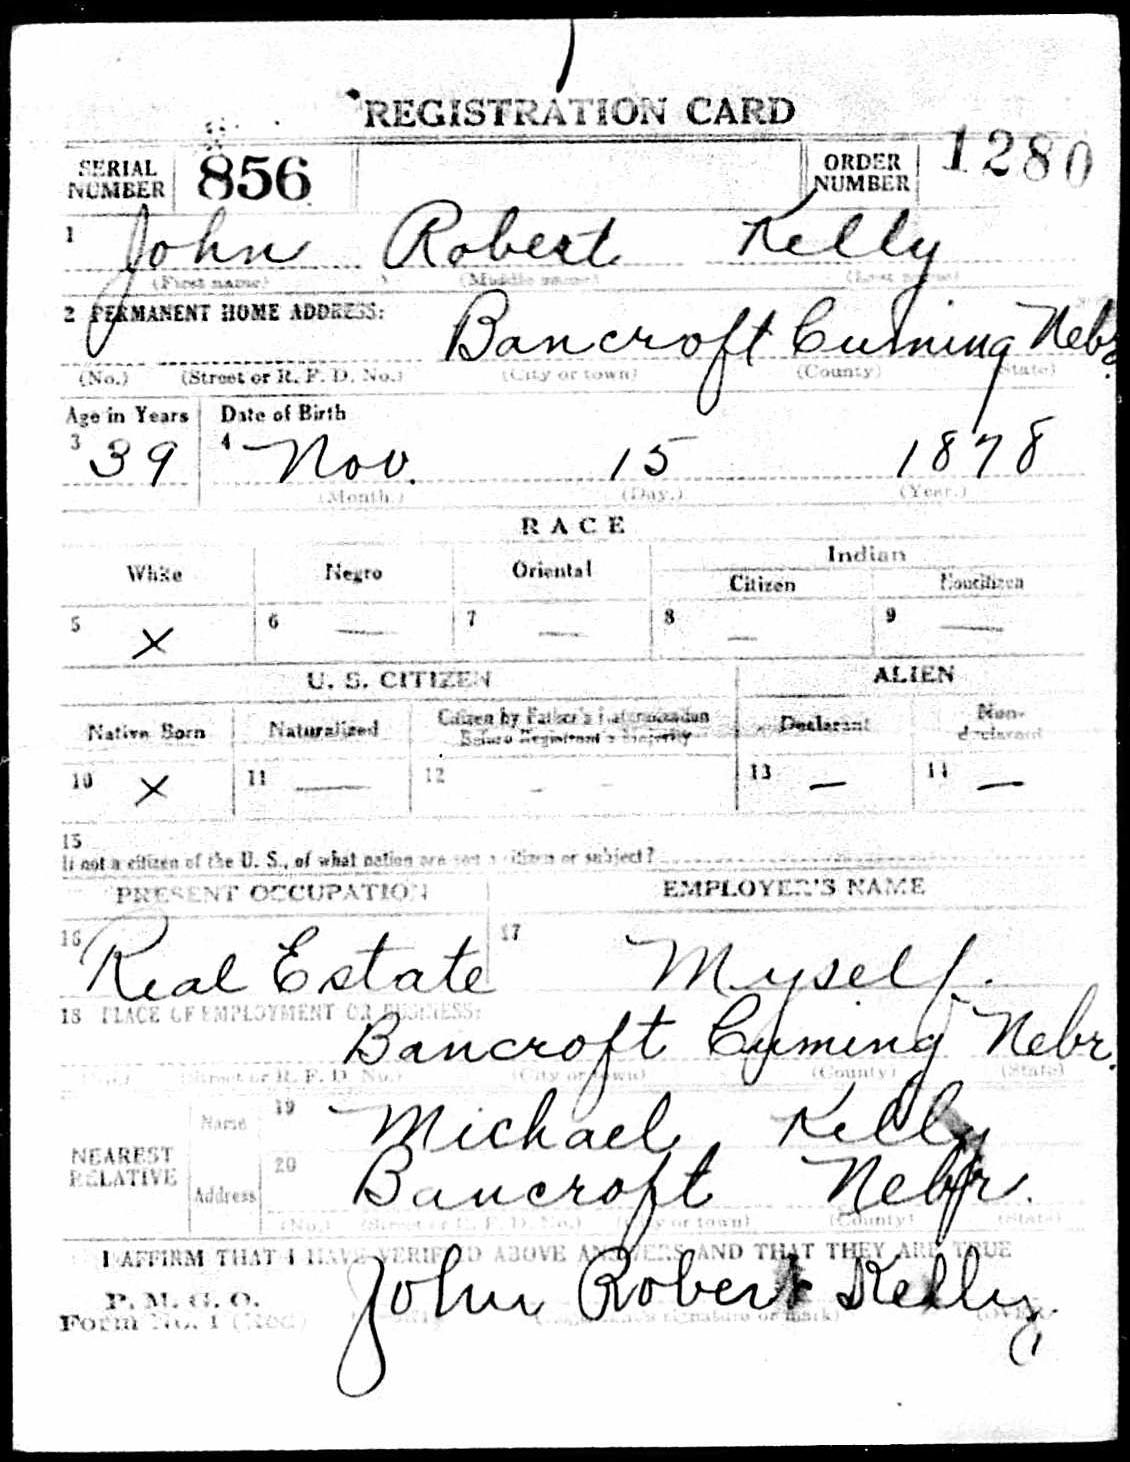 REGISTRATION CARD
SERIAL NUMBER 856 ORDER NUMBER 1280
1 John Robert Kelly
(First name) (Middle name) (Last name)
2 PERMANENT HOME ADDRESS:
Bancroft Cuming Nebr.
(No.) (Street or R. F. D. No.) (City or town) (County) (State)
Age in Years Date of Birth
3 39 4 Nov. 15 1878
(Month.) (Day.) (Year.)
RACE
White Negro Oriental Indian
Citizen Noncitizen
5 X 6 — 7 — 8 — 9 —
U. S. CITIZEN ALIEN
Native Born Naturalized Citizen by Father's Naturalization Before Registrant's Majority Declarant Non-declarant
10 X 11 — 12 - - 13 — 14 —
15
If not a citizen of the U. S., of what nation are you a citizen or subject?
PRESENT OCCUPATION EMPLOYER'S NAME
16 Real Estate 17 Myself.
18 PLACE OF EMPLOYMENT OR BUSINESS:
Bancroft Cuming Nebr.
(No.) (Street or R. F. D. No.) (City or town) (County) (State)
NEAREST RELATIVE
Name 19 Michael Kelly
Address 20 Bancroft Nebr.
(No.) (Street or R. F. D. No.) (City or town) (County) (State)
I AFFIRM THAT I HAVE VERIFIED ABOVE ANSWERS AND THAT THEY ARE TRUE
P. M. G. O.
Form No. 1 (Red) John Robert Kelly
(Registrant's signature or mark) (OVER)